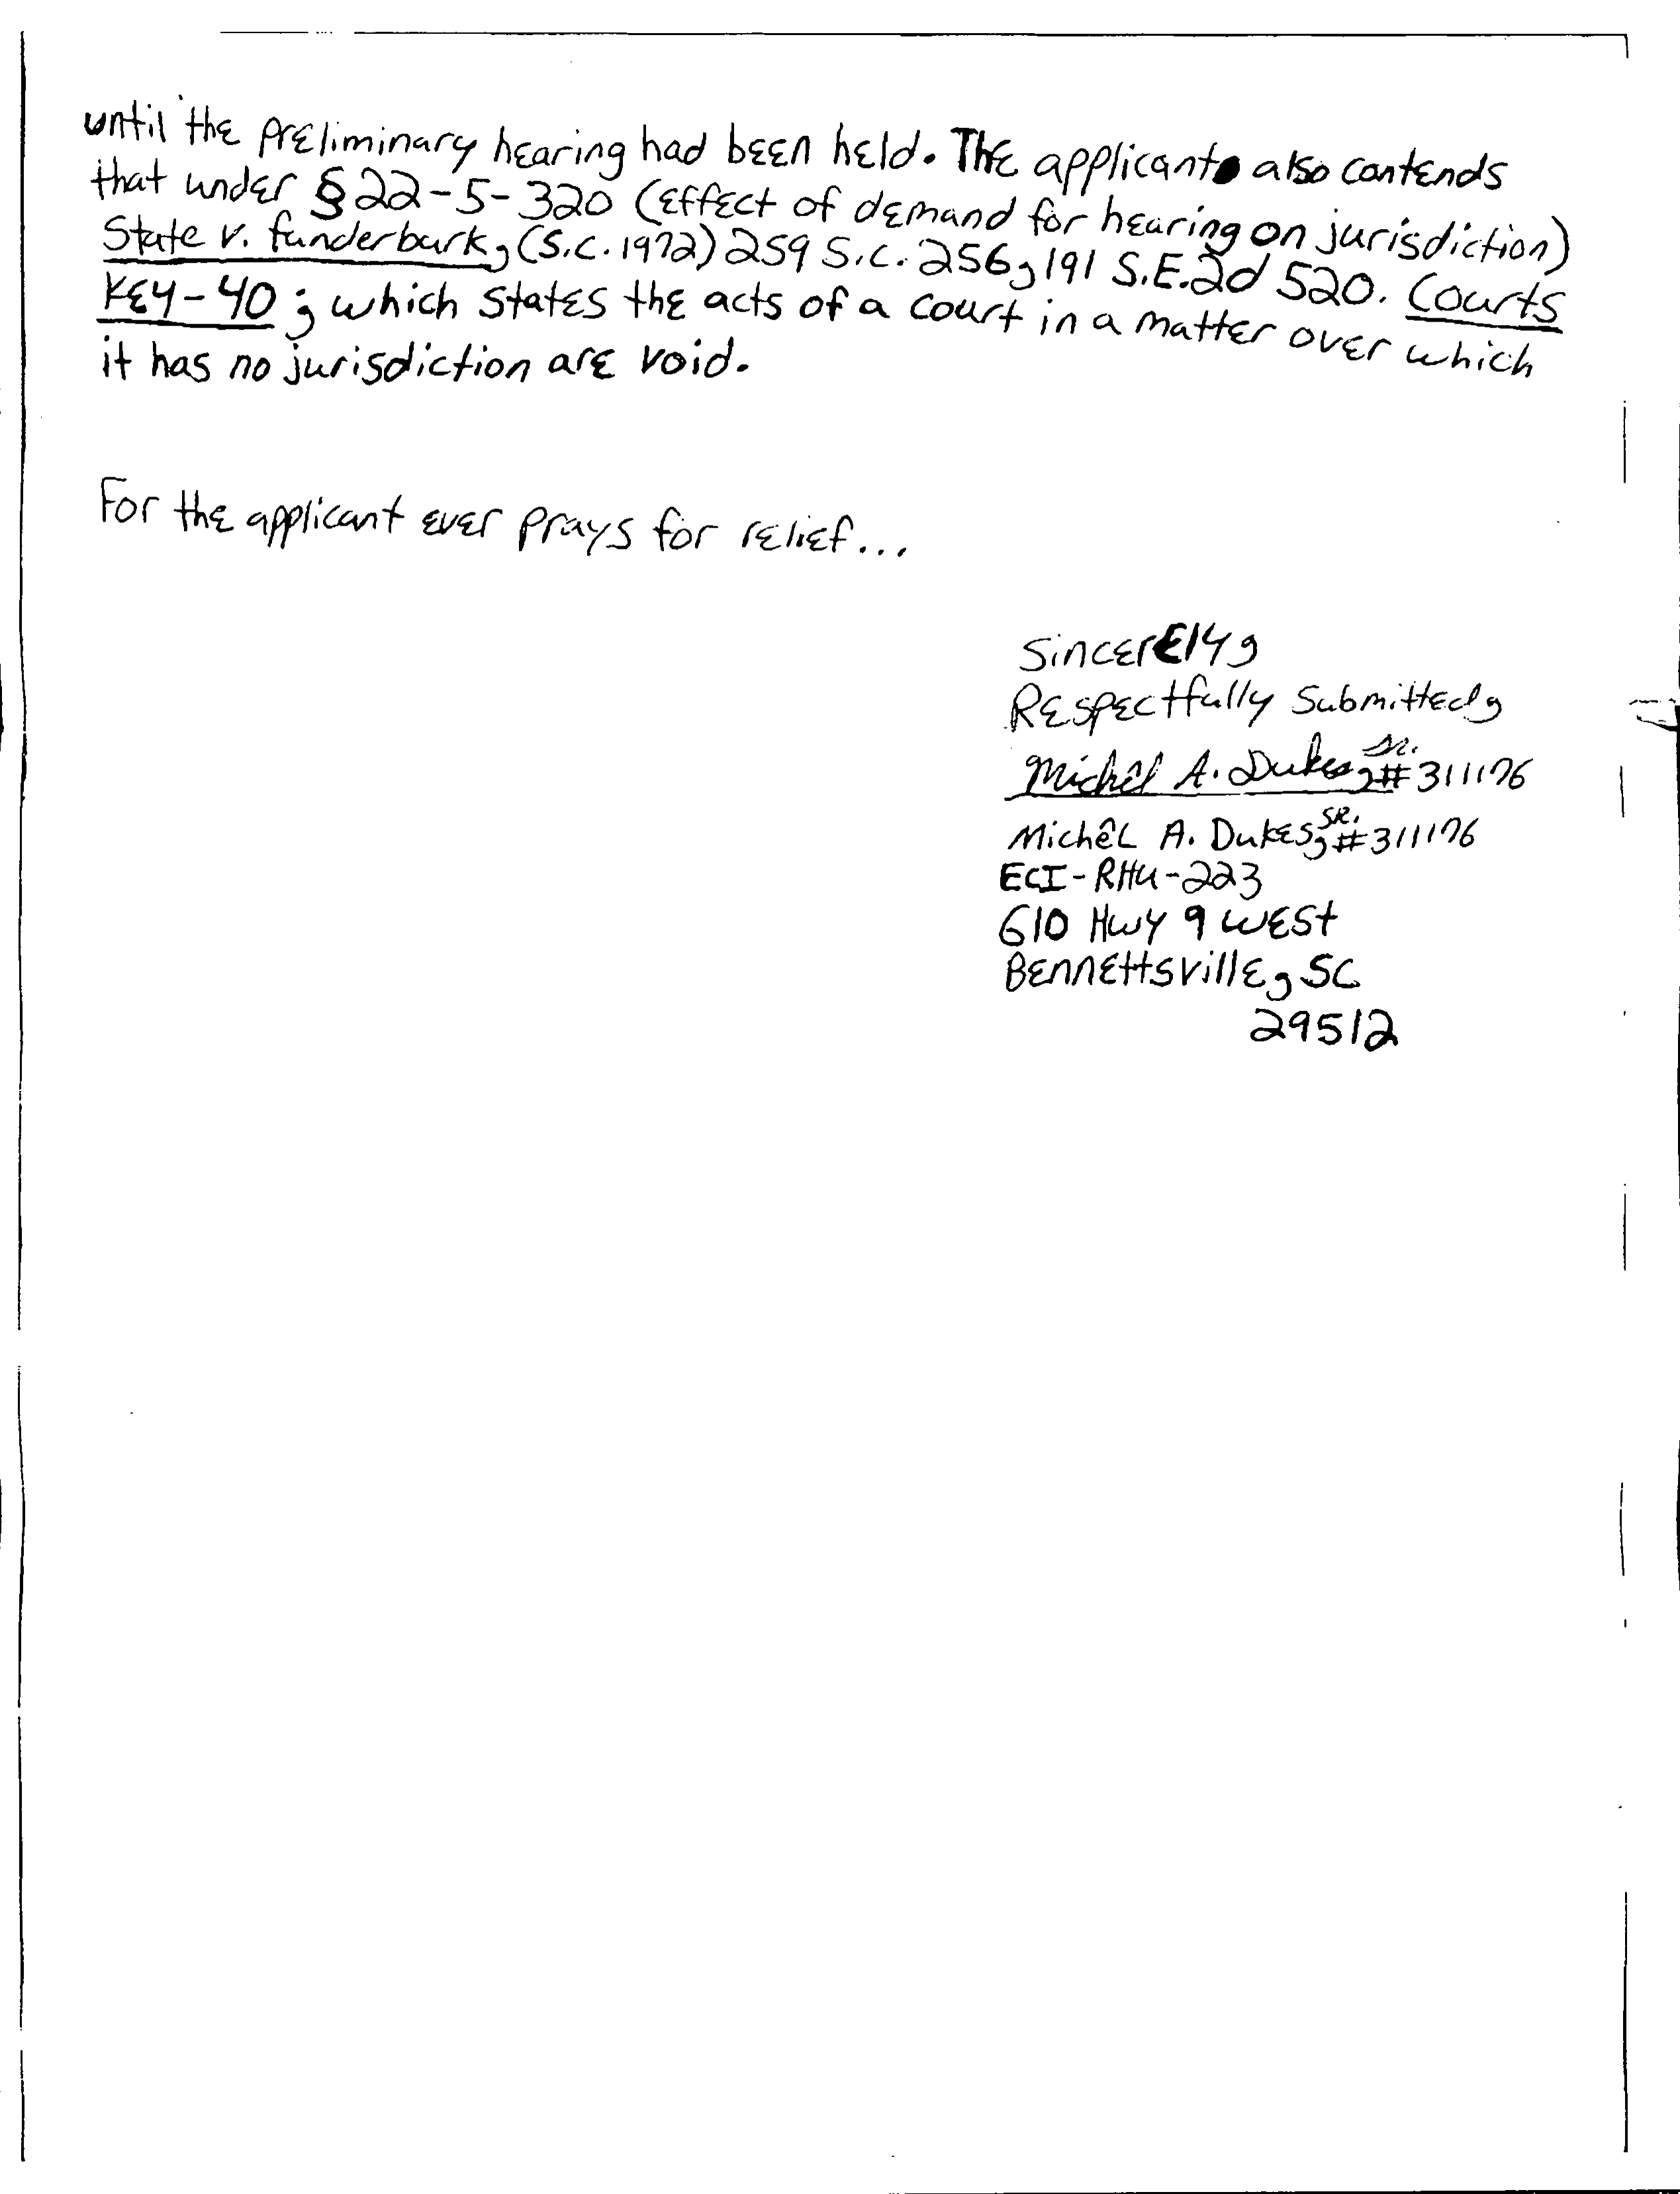 until the preliminary hearing had been held. The applicant also contends
that under § 22-5-320 (Effect of demand for hearing on jurisdiction)
State v. funderburk, (S.C. 1972) 259 S.C. 256, 191 S.E.2d 520. Courts
KEY-40; which states the acts of a court in a matter over which
it has no jurisdiction are void.
For the applicant ever prays for relief...
Sincerely,
Respectfully Submitted,
Michêl A. Dukes, Sr. #311176
Michêl A. Dukes, SR. #311176
ECI-RHU-223
610 Hwy 9 West
Bennettsville, SC
29512